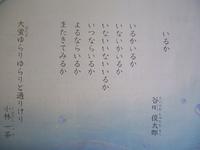 いるか
谷川 俊太郎
いるかいるか
いないかいるか
いないいないいるか
いつならいるか
よるならいるか
またきてみるか
大蛍ゆらりゆらりと通りけり
小林 一茶